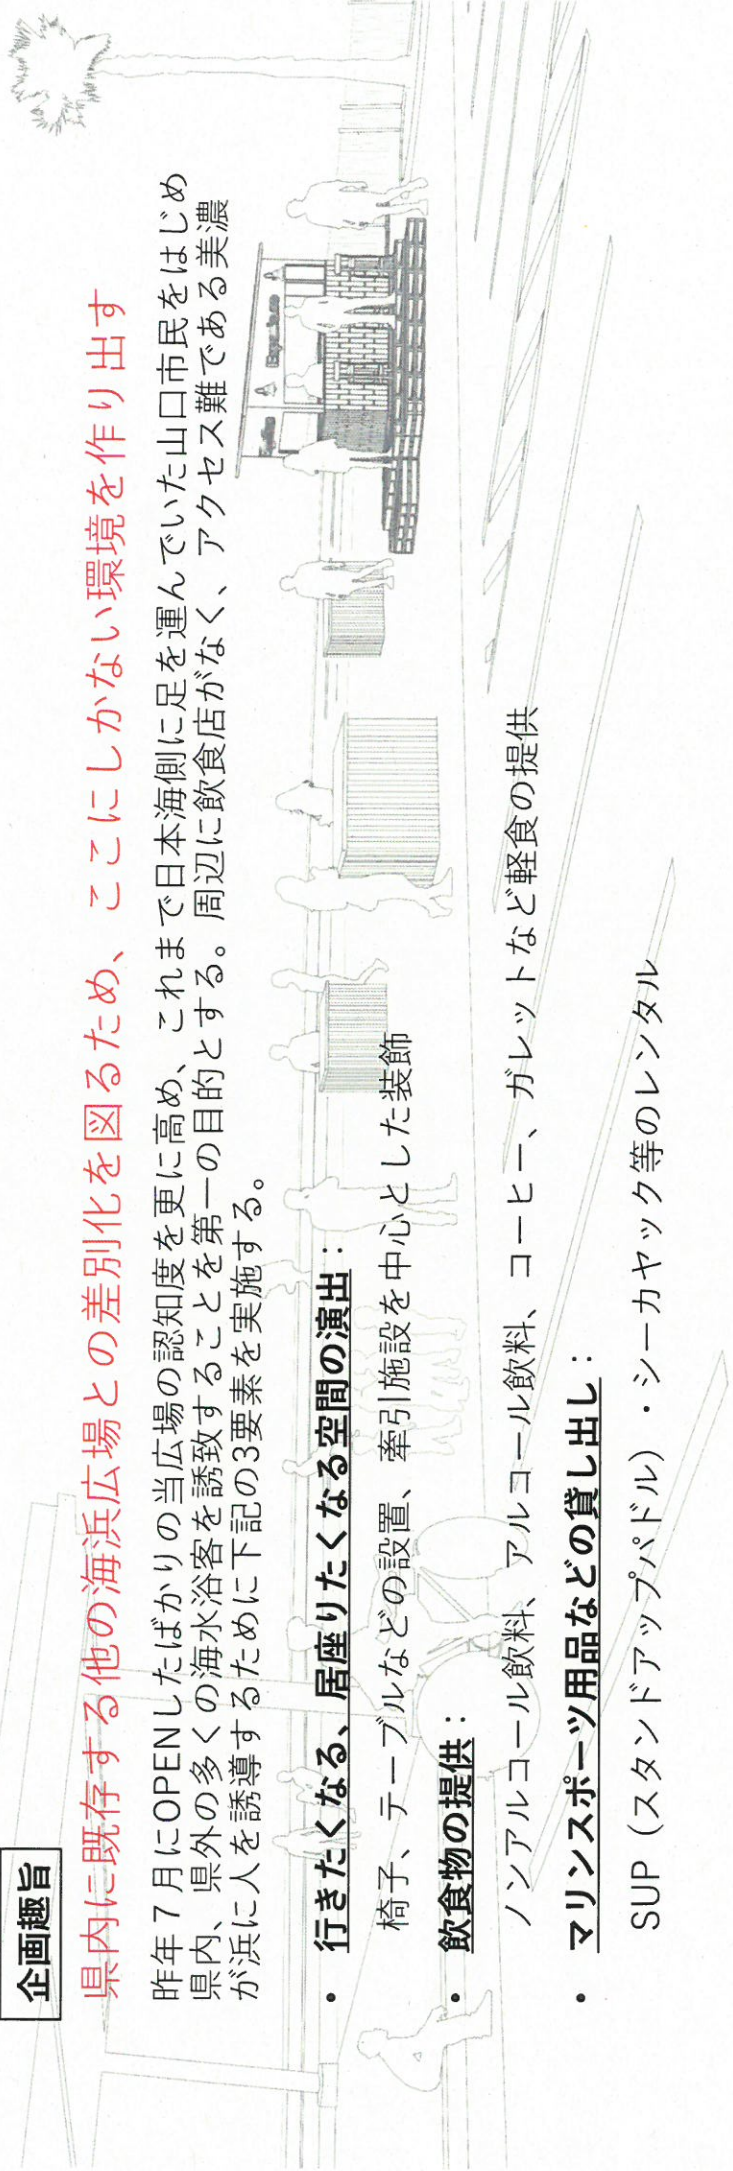 企画趣旨
県内に既存する他の海浜広場との差別化を図るため、ここにしかない環境を作り出す
昨年７月にOPENしたばかりの当広場の認知度を更に高め、これまで日本海側に足を運んでいた山口市民をはじめ
県内、県外の多くの海水浴客を誘致することを第一の目的とする。周辺に飲食店がなく、アクセス難である美濃
が浜に人を誘導するために下記の3要素を実施する。
• 行きたくなる、居座りたくなる空間の演出：
椅子、テーブルなどの設置、牽引施設を中心とした装飾
• 飲食物の提供：
ノンアルコール飲料、アルコール飲料、コーヒー、ガレットなど軽食の提供
• マリンスポーツ用品などの貸し出し：
SUP（スタンドアップパドル）・シーカヤック等のレンタル